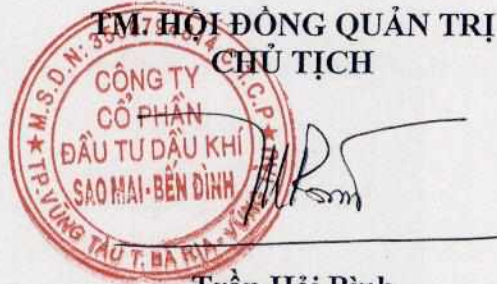 TM. HỘI ĐỒNG QUẢN TRỊ
CHỦ TỊCH
M.S.D.N:
C.T.C.P
CÔNG TY
CỔ PHẦN
ĐẦU TƯ DẦU KHÍ
SAO MAI - BẾN ĐÌNH
TP. VŨNG TÀU T. BÀ RỊA - VŨNG TÀU
Trần Hải Bình